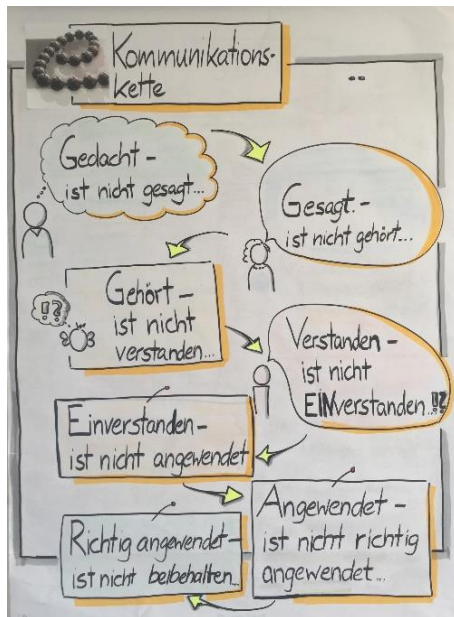 Kommunikations-
kette
Gedacht –
ist nicht gesagt...
Gesagt. –
ist nicht gehört...
Gehört –
ist nicht
verstanden...
!?
Verstanden –
ist nicht
EINverstanden...!?
Einverstanden–
ist nicht angewendet
Angewendet –
ist nicht richtig
angewendet...
Richtig angewendet–
ist nicht beibehalten...